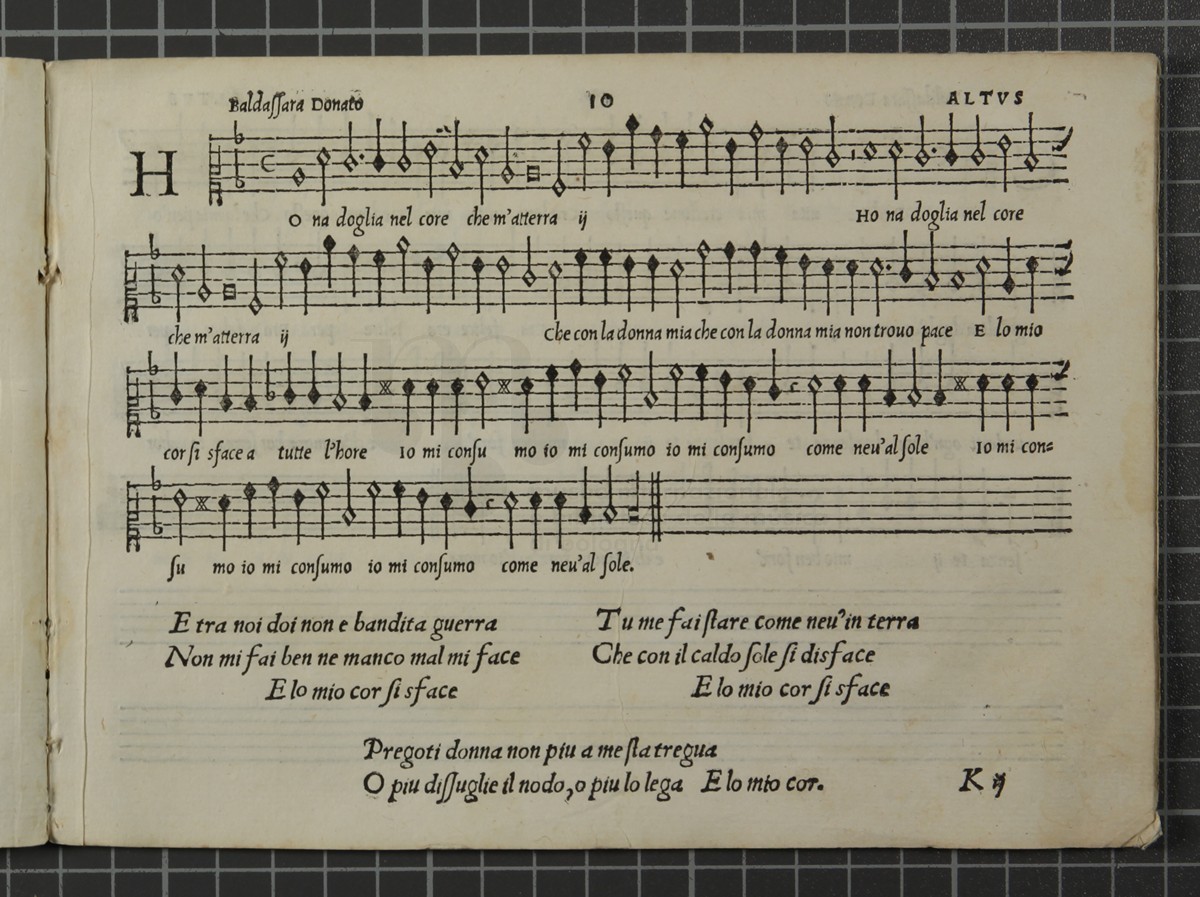 Baldaſſara Donato 10 ALTVS
H O na doglia nel core che m'atterra ij Ho na doglia nel core
che m'atterra ij Che con la donna mia che con la donna mia non trouo pace E lo mio
cor ſi sface a tutte l'hore Io mi conſu mo io mi conſumo io mi conſumo come neu'al ſole Io mi con=
ſu mo io mi conſumo io mi conſumo come neu'al ſole.
E tra noi doi non e bandita guerra
Non mi fai ben ne manco mal mi face
E lo mio cor ſi sface
Tu me fai ſtare come neu'in terra
Che con il caldo ſole ſi disface
E lo mio cor ſi sface
Pregoti donna non piu a me ſla tregua
O piu diſſuglie il nodo, o piu lo lega E lo mio cor.
K ij